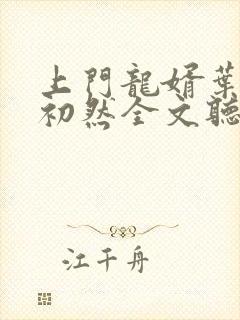 上門龍婿葉
初然全文聽
江千舟